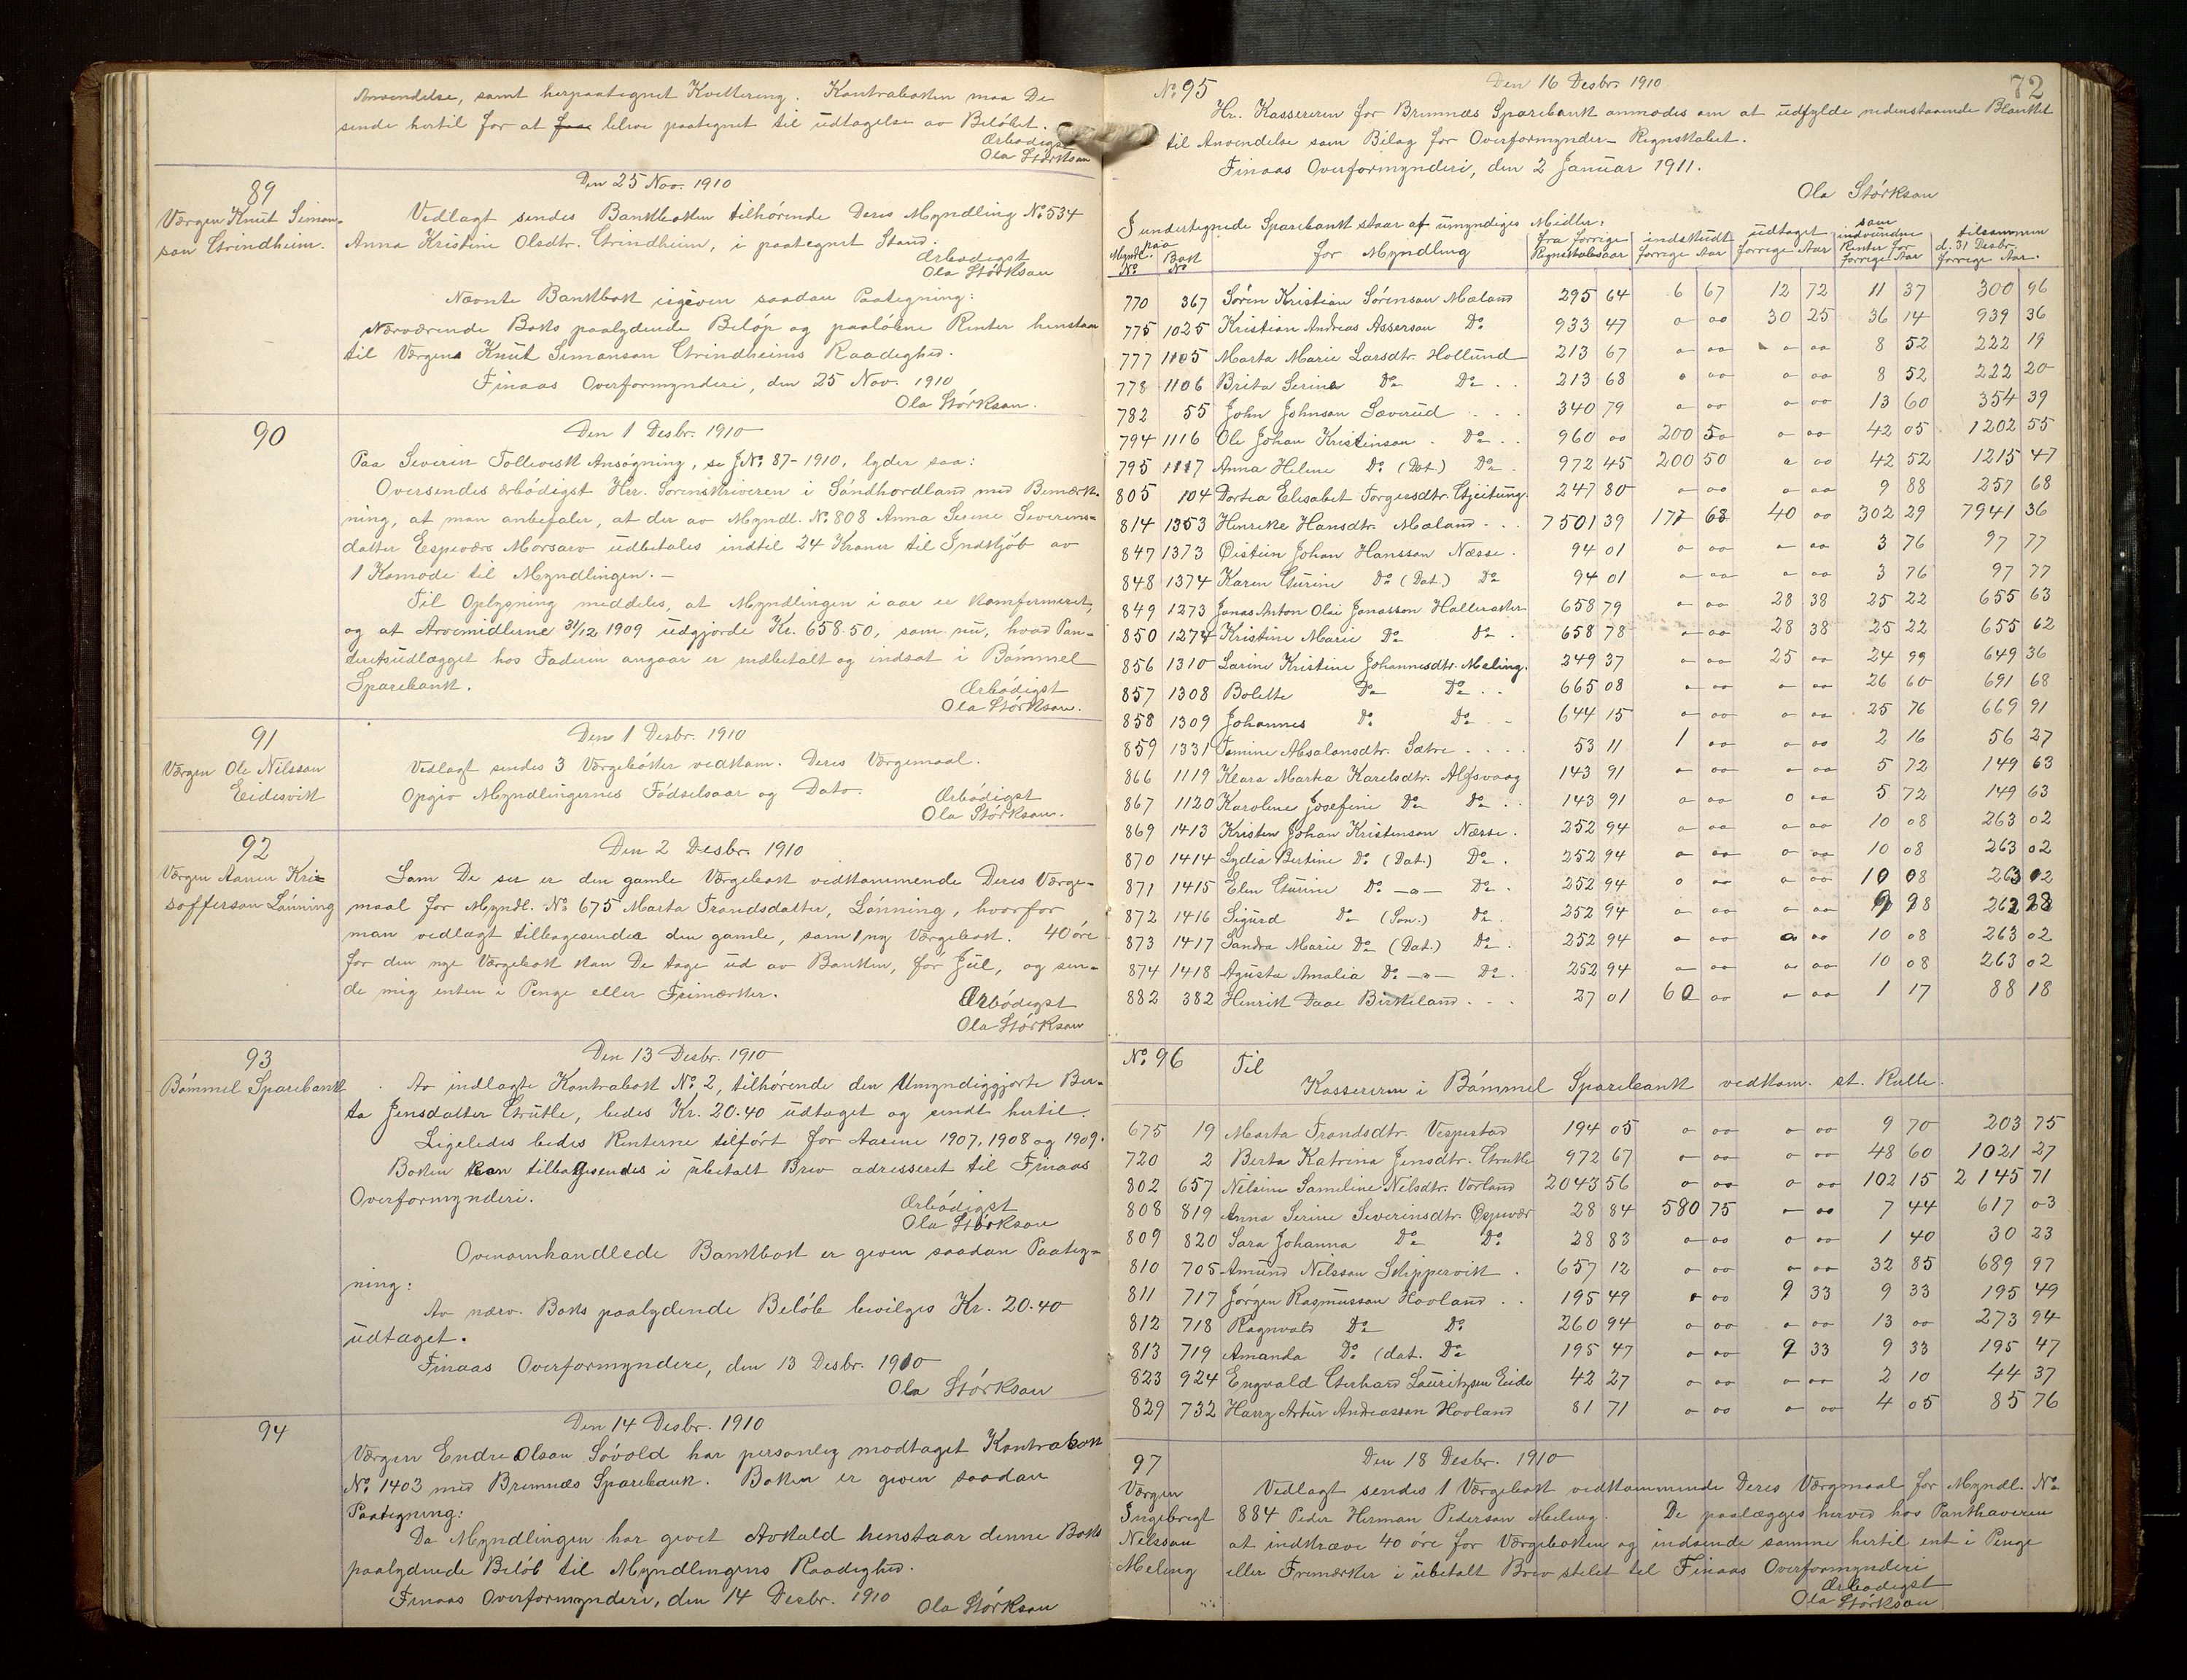 Anvendelse, samt herpaategnet Kvittering. Kontraboken maa De
sende hertil for at faae blive paategnet til üdtagelse av Beløbet.
Ærbødigst
Ola Størkson
89
Den 25 Nov. 1910
Værgen Knüt Simon-
son Grindheim.
Vedlagt sendes Bankboken tilhørende Deres Myndling No 534
Anna Kristine Olsdtr. Grindheim, i paategnet Stand.
Ærbødigst
Ola Størkson
Nævnte Bankbok er given saadan Paategning:
Nærværende Boks paalydende Beløp og paaløbne Renter henstaar
til Værgens Knüt Simonson Grindheims Raadighed.
Finaas Overformynderi, den 25 Nov. 1910
Ola Størkson.
90
Den 1 Desbr. 1910
Paa Severin Tollevsk Ansøgning, se JNo 87-1910, lyder saa:
Oversendes ærbødigst Hr. Sorenskriveren i Søndhordland med Bemærk-
ning, at man anbefaler, at der av Myndl. No 808 Anna Serine Severins-
datter Espevær Morsarv üdbetales indtil 24 Kroner til Indkjøb av
1 Komode til Myndlingen. –
Til Oplysning meddeles, at Myndlingen i aar er konfirmeret,
og at Arvemidlerne 31/12 1909 üdgjorde Kr. 658.50, som nü, hvad Pan-
teretsüdlægget hos Faderen angaar er indbetalt og indsat i Bømmel
Sparebank.
Ærbødigst
Ola Størkson.
91
Den 1 Desbr. 1910
Værgen Ole Nilsson
Eidesvik
Vedlagt sendes 3 Værgebøker vedkom. Deres Værgemaal.
Opgiv Myndlingernes Fødselsaar og Dato.
Ærbødigst
Ola Størkson.
92
Den 2 Desbr. 1910
Værgen Aanen Kri=
stofferson Lønning
Som De ser er den gamle Værgebok vedkommende Deres Værge-
maal for Myndl. No 675 Marta Trondsdatter, Lønning, hvorfor
man vedlagt tilbagesender den gamle, samt 1 ny Værgebok. 40 øre
for den nye Værgebok kan De tage üd av Banken, før Jül, og sen-
de mig enten i Penge eller Frimærker.
Ærbødigst
Ola Størkson
93
Den 13 Desbr. 1910
Bømmel Sparebank
Av indlagte Kontrabok No 2, tilhørende den Umyndiggjorte Ber-
ta Jensdatter Grütle, bedes Kr. 20.40 üdtaget og sendt hertil.
Ligeledes bedes Renterne tilført for Aarene 1907, 1908 og 1909.
Boken kan tilbagesendes i übetalt Brev adresseret til Finaas
Overformynderi.
Ærbødigst
Ola Størkson
Ovenomhandlede Bankbok er given saadan Paateg-
ning:
Av nærv. Boks paalydende Beløb bevilges Kr. 20.40
üdtaget.
Finaas Overformynderi, den 13 Desbr. 1910
Ola Størkson
94
Den 14 Desbr. 1910
Værgen Endre Olson Søvold har personlig modtaget Kontrabok
No 1403 med Bremnæs Sparebank. Boken er given saadan
Paategning:
Da Myndlingen har givet Avkald henstaar denne Boks
paalydende Beløb til Myndlingens Raadighed.
Finaas Overformynderi, den 14 Desbr. 1910
Ola Størkson
72
No 95
Den 16 Desbr. 1910
Hr. Kassereren for Bremnæs Sparebank anmodes om at üdfylde nedenstaaende Blanket
til Anvendelse som Bilag for Overformynder-Regnskabet.
Finaas Overformynderi, den 2 Januar 1911.
Ola Størkson
I undertegnede Sparebank staar af umyndiges Midler:
paa
Myndl. No Bok No for Myndling fra forrige Regnskabsaar indskudt forrige Aar üdtaget forrige Aar som indvundne Renter for forrige Aar tilsammen d. 31 Desbr. forrige Aar.
770 367 Søren Kristian Sørenson Mæland 295 64 6 67 12 72 11 37 300 96
775 1025 Kristian Andreas Asserson Do 933 47 0 00 30 25 36 14 939 36
777 1105 Marta Marie Larsdtr. Hollund 213 67 0 00 0 00 8 52 222 19
778 1106 Brita Serina Do Do 213 68 0 00 0 00 8 52 222 20
782 55 John Johnson Sæverud 340 79 0 00 0 00 13 60 354 39
794 1116 Ole Johan Kristenson Do 960 00 200 50 0 00 42 05 1202 55
795 1117 Anna Helene Do (Dat.) Do 972 45 200 50 0 00 42 52 1215 47
805 104 Dortea Elisabet Torgersdtr. Gjeitung 247 80 0 00 0 00 9 88 257 68
814 1353 Henrike Hansdtr. Mæland 7501 39 177 68 40 00 302 29 7941 36
847 1373 Øistein Johan Hansson Næsse 94 01 0 00 0 00 3 76 97 77
848 1374 Karen Gurine Do (Dat.) Do 94 01 0 00 0 00 3 76 97 77
849 1273 Jonas Anton Olai Jonasson Halleraker 658 79 0 00 28 38 25 22 655 63
850 1274 Kristine Marie Do Do 658 78 0 00 28 38 25 22 655 62
856 1310 Larine Kristine Johannesdtr. Meling. 249 37 0 00 25 00 24 99 649 36
857 1308 Bolette Do Do 665 08 0 00 0 00 26 60 691 68
858 1309 Johannes Do Do 644 15 0 00 0 00 25 76 669 91
859 1331 Tomine Absalonsdtr. Sætre 53 11 1 00 0 00 2 16 56 27
866 1119 Klara Marka Karelsdtr. Alfsvaag 143 91 0 00 0 00 5 72 149 63
867 1120 Karoline Josefine Do Do 143 91 0 00 0 00 5 72 149 63
869 1413 Kristen Johan Kristenson Næsse 252 94 0 00 0 00 10 08 263 02
870 1414 Lydia Bertine Do (Dat.) Do 252 94 0 00 0 00 10 08 263 02
871 1415 Elen Gurine Do –"– Do 252 94 0 00 0 00 10 08 263 02
872 1416 Sigurd Do (Søn.) Do 252 94 0 00 0 00 9 98 262 98
873 1417 Sandra Marie Do (Dat.) Do 252 94 0 00 0 00 10 08 263 02
874 1418 Agusta Amalia Do –"– Do 252 94 0 00 0 00 10 08 263 02
882 382 Henrik Daae Birkeland 27 01 60 00 0 00 1 17 88 18
No 96
Til
Kassereren i Bømmel Sparebank vedkom. st. Rulle.
675 19 Marta Trondsdtr. Vespestad 194 05 0 00 0 00 9 70 203 75
720 2 Berta Katrina Jensdtr. Grutle 972 67 0 00 0 00 48 60 1021 27
802 657 Nelsine Sameline Nilsdtr. Vorland 2043 56 0 00 0 00 102 15 2145 71
808 819 Anna Serine Severinsdtr. Espevær 28 84 580 75 0 00 7 44 617 03
809 820 Sara Johanna Do Do 28 83 0 00 0 00 1 40 30 23
810 705 Amund Nilsson Skippervik 657 12 0 00 0 00 32 85 689 97
811 717 Jørgen Rasmusson Hovland 195 49 0 00 9 33 9 33 195 49
812 718 Ragnvald Do Do 260 94 0 00 0 00 13 00 273 94
813 719 Amanda Do (dat. Do 195 47 0 00 9 33 9 33 195 47
823 924 Engvald Gerhard Lauritzsen Eide 42 27 0 00 0 00 2 10 44 37
829 732 Harry Artur Andreasson Hovland 81 71 0 00 0 00 4 05 85 76
97
Den 18 Desbr. 1910
Værgen
Ingebregt
Nelsson
Meling
Vedlagt sendes 1 Værgebok vedkommende Deres Værgmaal for Myndl. No
884 Peder Herman Pederson Meling. De paalægges herved hos Panthaveren
at indkræve 40 øre for Værgeboken og indsende samme hertil ent i Penge
eller Frimærker i übetalt Brev stilet til Finaas Overformynderi
Ærbødigst
Ola Størkson